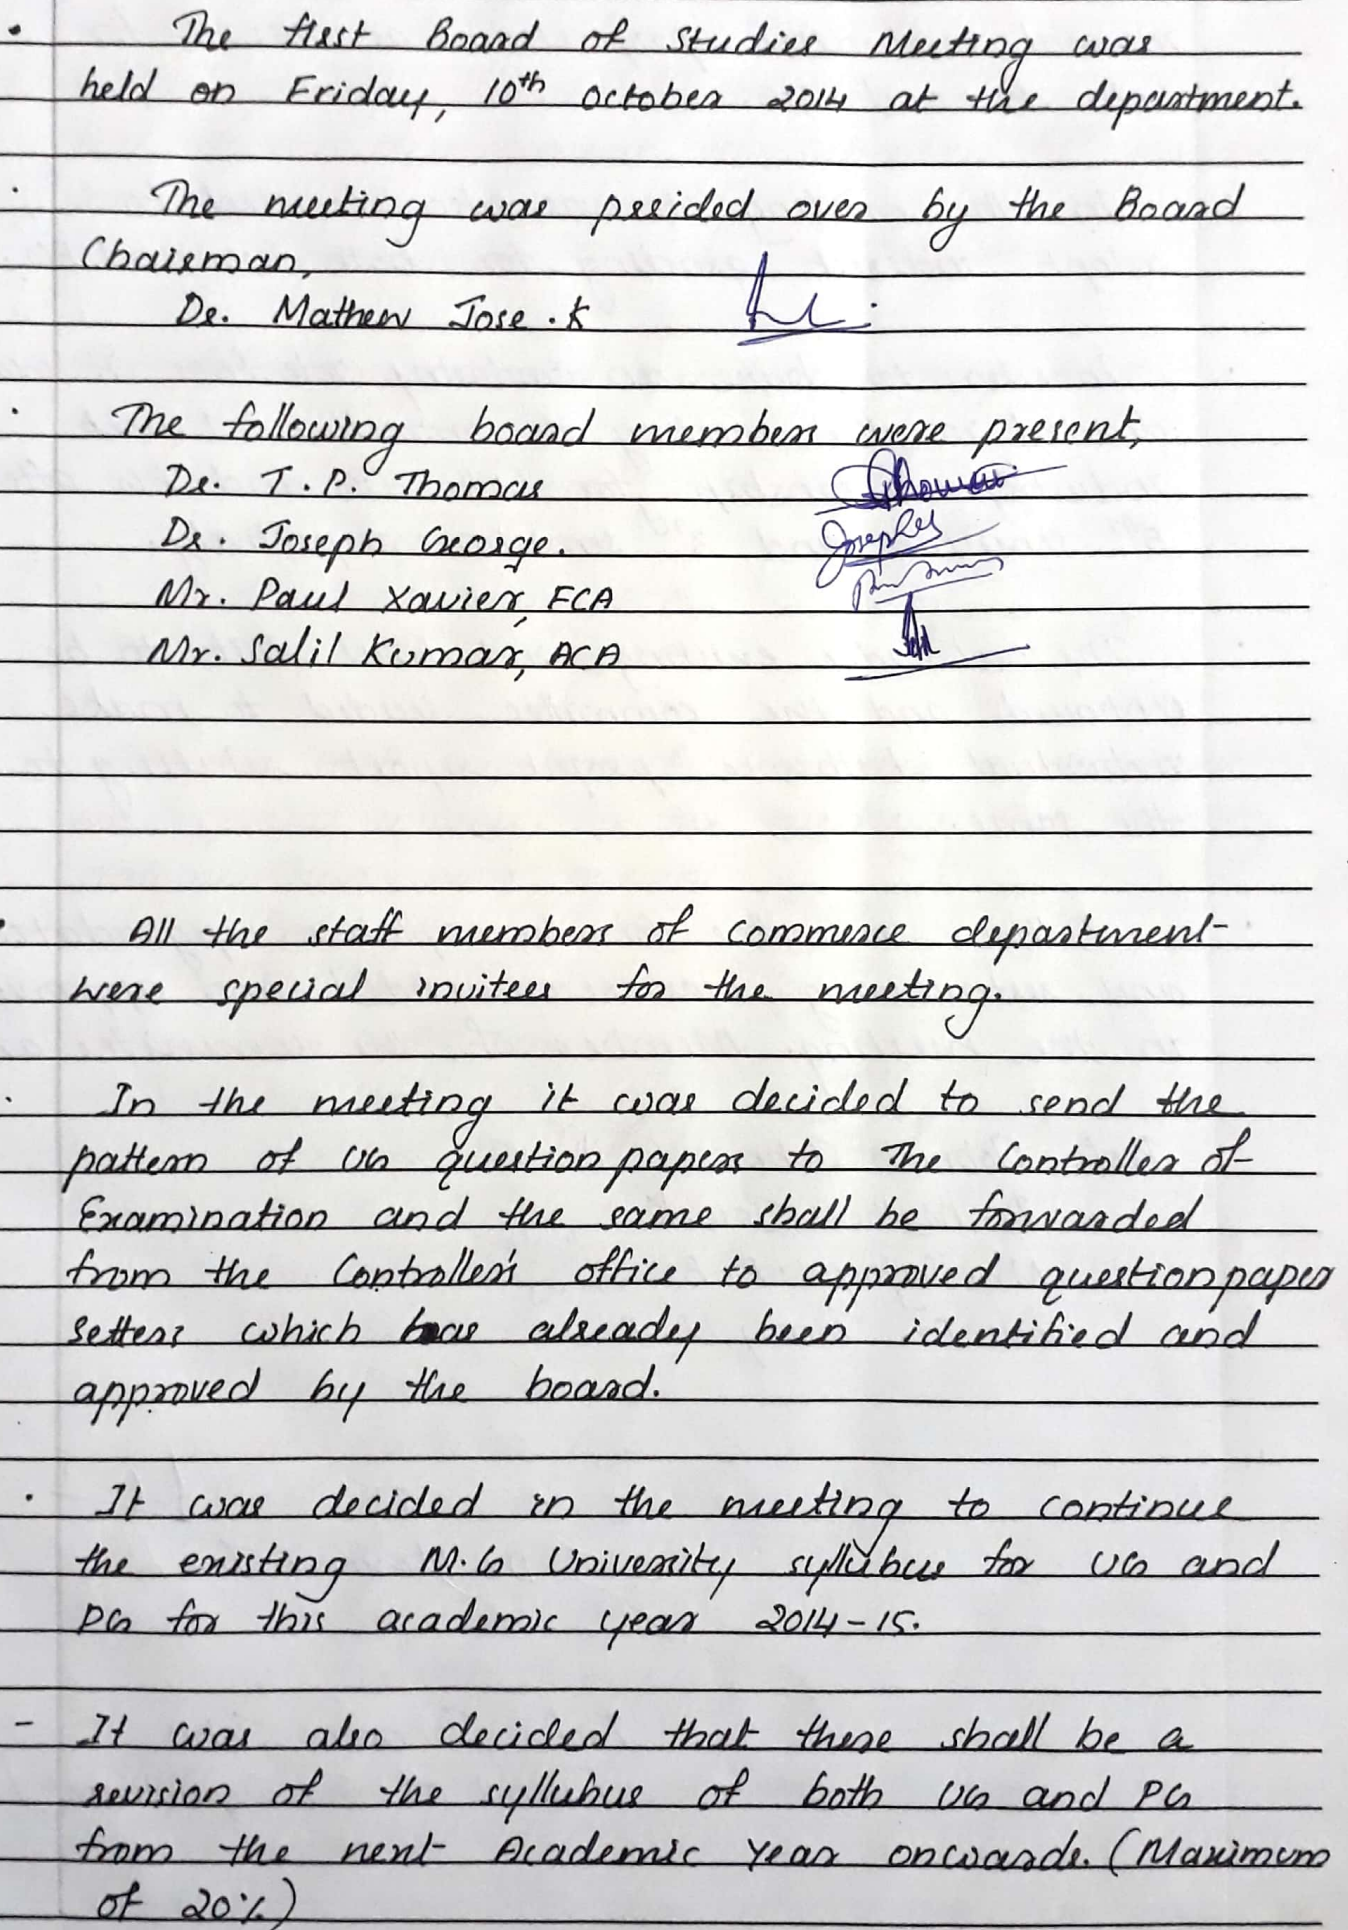 • The first Board of Studies Meeting was
held on Friday, 10th October 2014 at the department.
• The meeting was presided over by the Board
Chairman,
Dr. Mathew Jose . K
• The following board members were present,
Dr. T. P. Thomas
Dr. Joseph George.
Mr. Paul Xavier, FCA
Mr. Salil Kumar, ACA
• All the staff members of Commerce department
were special invitees for the meeting.
• In the meeting it was decided to send the
pattern of UG question papers to The Controller of
Examination and the same shall be forwarded
from the Controller's office to approved question paper
setters which has already been identified and
approved by the board.
• It was decided in the meeting to continue
the existing M.G University syllubus for UG and
PG for this academic year 2014-15.
- It was also decided that there shall be a
revision of the syllubus of both UG and PG
from the next Academic Year onwards. (Maximum
of 20%)